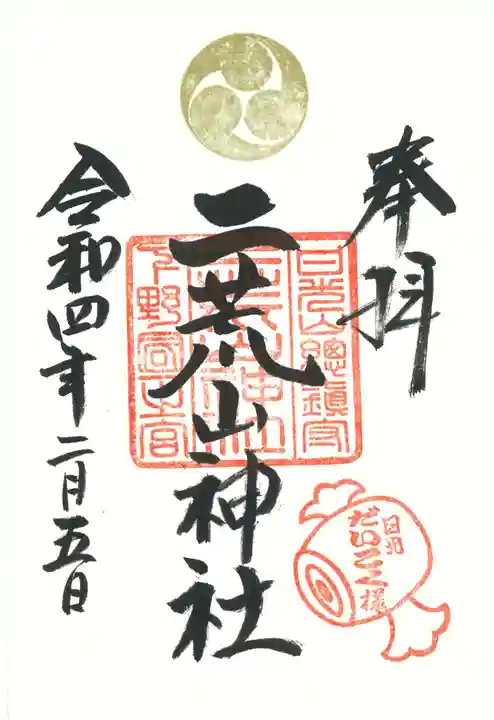 奉拝
日光山總鎮守
二荒山神社
下野國一之宮
日光
だいこく様
令和四年二月五日